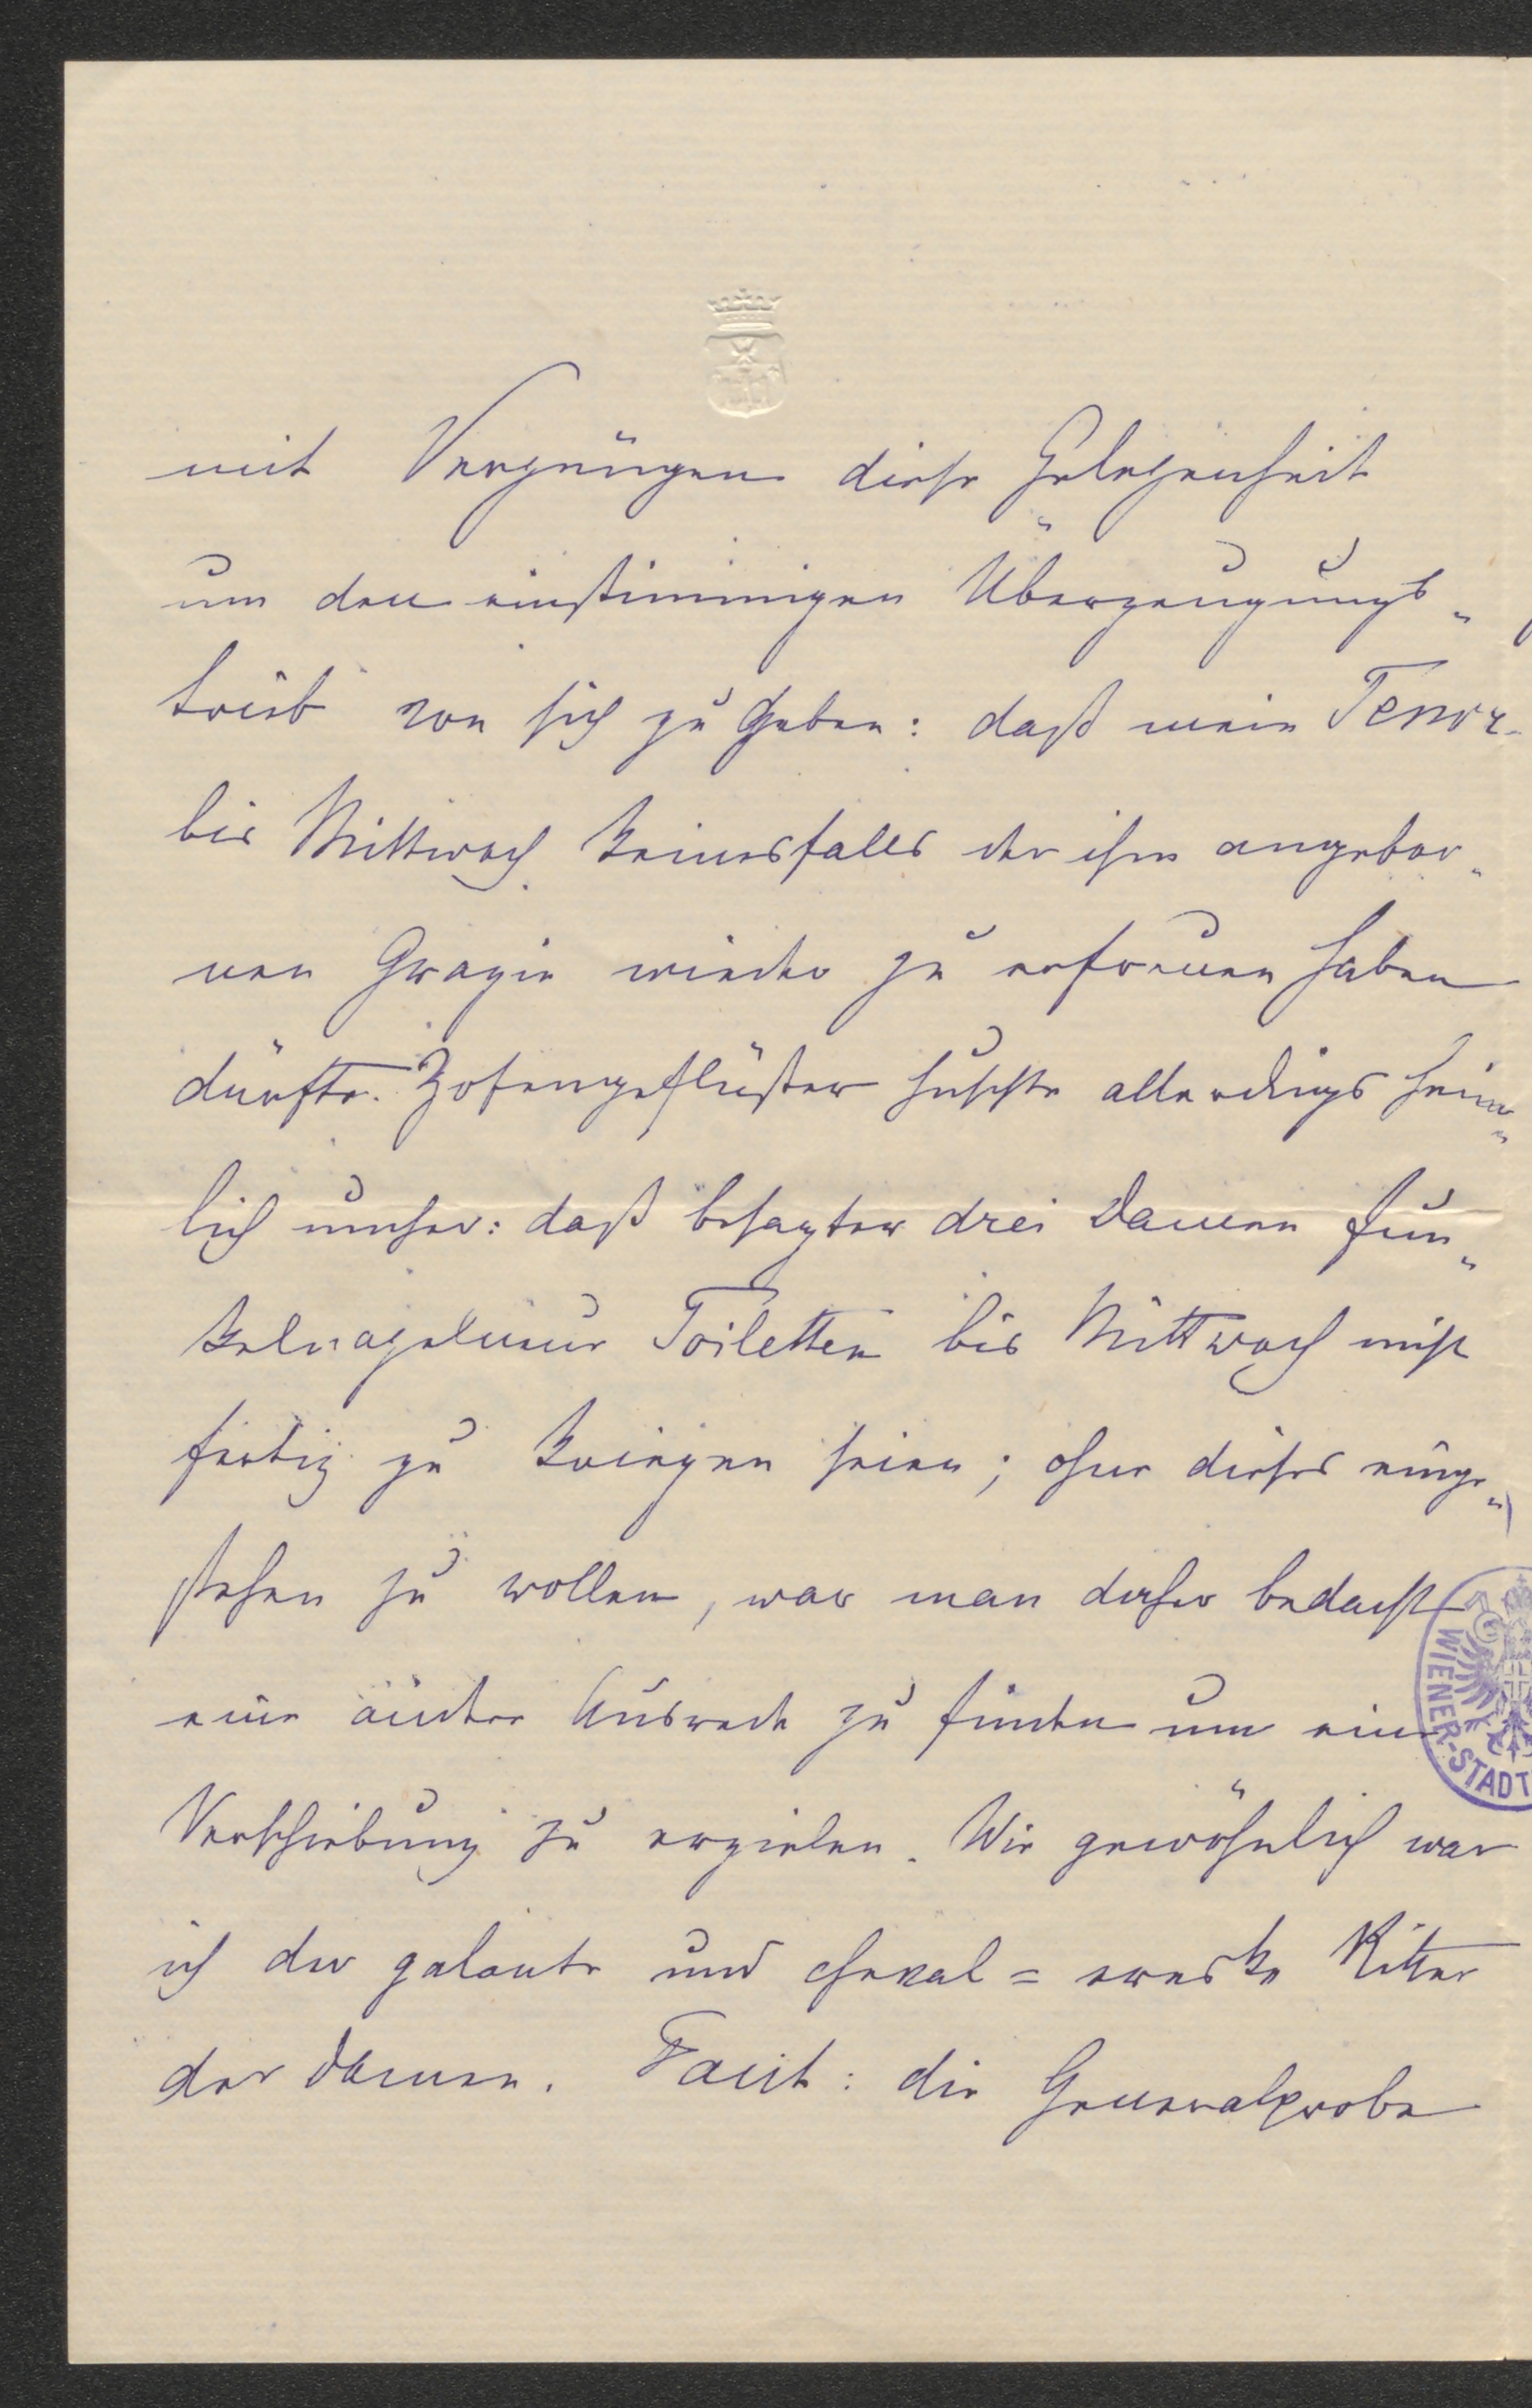 mit Vergnügen diese Gelegenheit
um den einstimmigen Überzeugungs„
trieb von sich zu geben: daß mein Tenor
bis Mittwoch keinesfalls der ihm angebor„
nen Grazie wieder zu erfreuen haben
dürfte. Zofengeflüster huschte allerdings heim„
lich umher: daß besagter drei Damen fun„
kelnagelneue Toiletten bis Mittwoch nicht
fertig zu kriegen seien; ohne dieses einge„
stehen zu wollen, war man daher bedacht
eine andere Ausrede zu finden um eine
Verschiebung zu erzielen. Wie gewöhnlich war
ich der galante und cheval = ereske Ritter
der Damen. Facit: die Generalprobe
WIENER-STADT